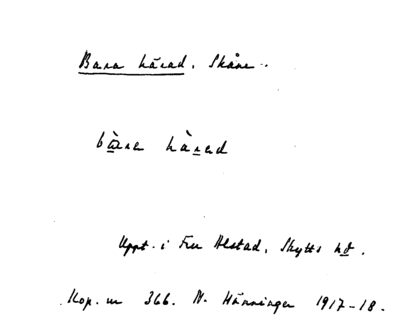 Bara härad. Skåne.
bàra hàrad
Uppt. i Fru Alstad, Skytts hd.
Kop. ur 366. N. Hänninger 1917-18.